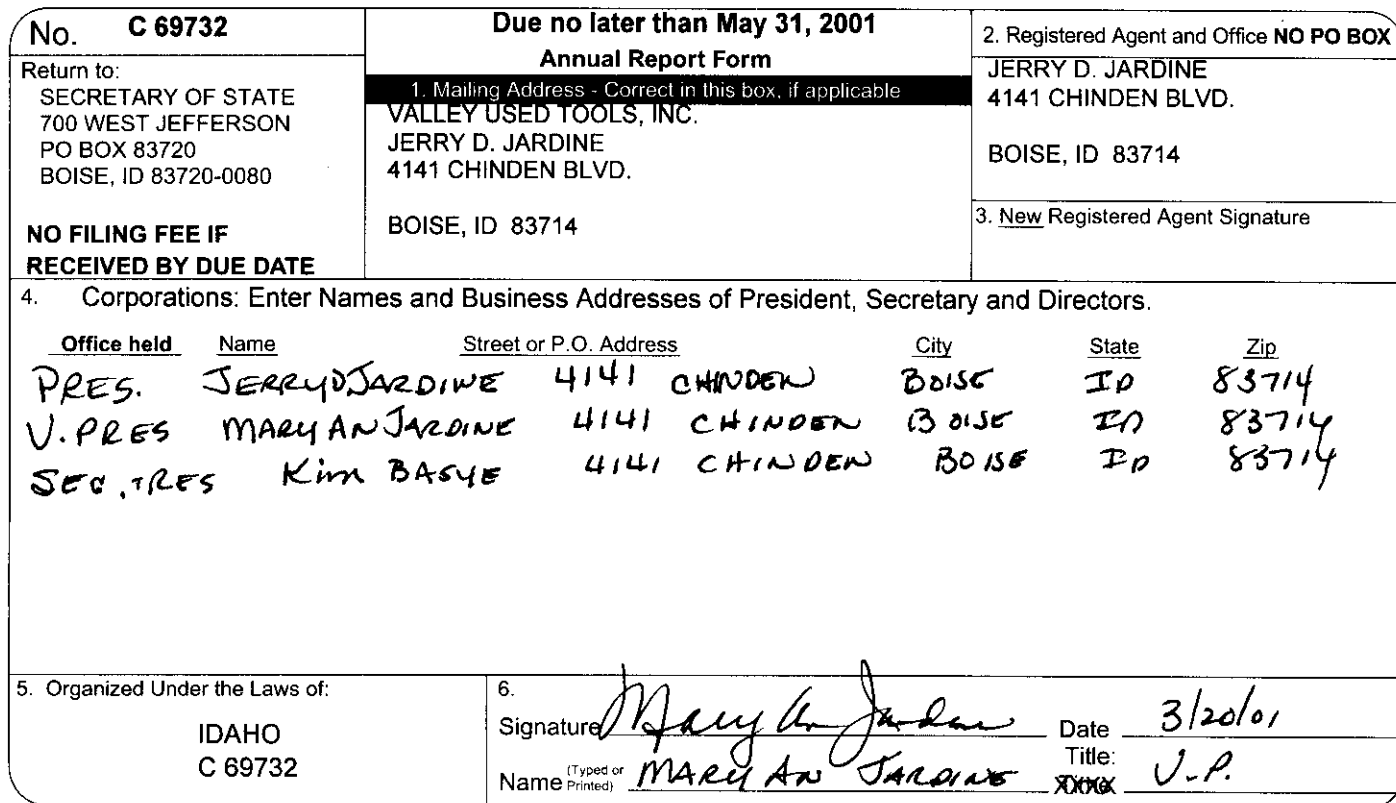 No. C 69732
Return to:
SECRETARY OF STATE
700 WEST JEFFERSON
PO BOX 83720
BOISE, ID 83720-0080
NO FILING FEE IF
RECEIVED BY DUE DATE
Due no later than May 31, 2001
Annual Report Form
1. Mailing Address - Correct in this box, if applicable
VALLEY USED TOOLS, INC.
JERRY D. JARDINE
4141 CHINDEN BLVD.
BOISE, ID 83714
2. Registered Agent and Office NO PO BOX
JERRY D. JARDINE
4141 CHINDEN BLVD.
BOISE, ID 83714
3. New Registered Agent Signature
4. Corporations: Enter Names and Business Addresses of President, Secretary and Directors.
Office held Name Street or P.O. Address City State Zip
PRES. JERRY D JARDINE 4141 CHINDEN BOISE ID 83714
V. PRES MARY AN JARDINE 4141 CHINDEN BOISE ID 83714
SEC, TRES Kim BASYE 4141 CHINDEN BOISE ID 83714
5. Organized Under the Laws of:
IDAHO
C 69732
6.
Signature Mary An Jardine Date 3/20/01
Name (Typed or Printed) MARY AN JARDINE Title: V.P.